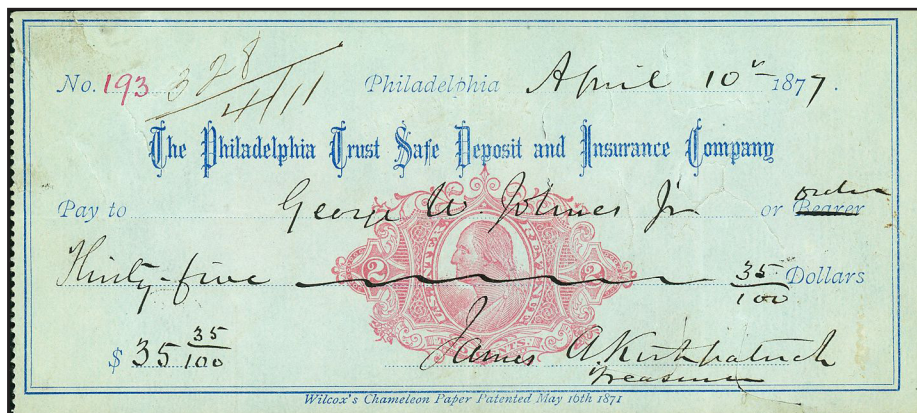 No. 193 328 4/11 Philadelphia April 10th 1877.
The Philadelphia Trust Safe Deposit and Insurance Company
Pay to George W. Holmes Jr or Bearer order
Thirty-five 35/100 Dollars
$ 35 35/100
James A. Kirkpatrick
Treasurer
2 2
Wilcox's Chameleon Paper Patented May 16th 1871